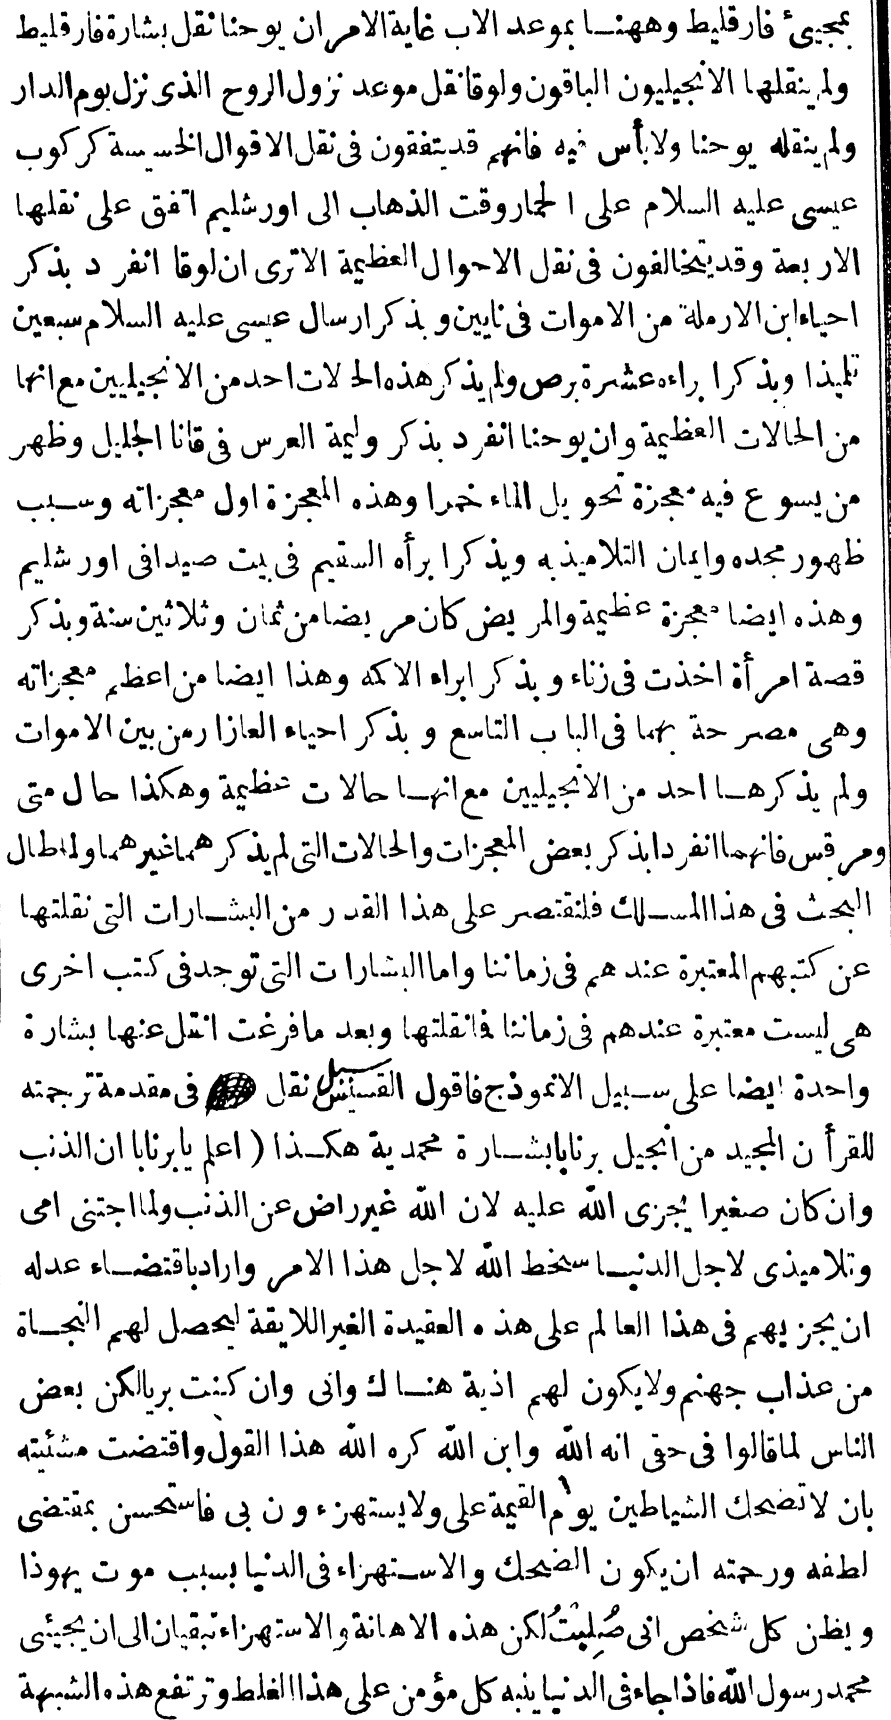 بمجيئ فارقليط وههنا بموعد الاب غاية الامر ان يوحنا نقل بشارة فارقليط
ولم ينقلها الانجيليون الباقون ولوقا نقل موعد نزول الروح الذى نزل يوم الدار
ولم ينقله يوحنا ولا بأس فيه فانهم قد يتفقون فى نقل الاقوال الخسيسة كركوب
عيسى عليه السلام على الحمار وقت الذهاب الى اورشليم اتفق على نقلها
الاربعة وقد يتخالفون فى نقل الاحوال العظيمة الا ترى ان لوقا انفرد بذكر
احياء ابن الارملة من الاموات فى نايين وبذكر ارسال عيسى عليه السلام سبعين
تلميذا وبذكر ابراءه عشرة برص ولم يذكر هذه الحالات احد من الانجيليين مع انها
من الحالات العظيمة وان يوحنا انفرد بذكر وليمة العرس فى قانا الجليل وظهر
من يسوع فيه معجزة تحويل الماء خمرا وهذه المعجزة اول معجزاته وسبب
ظهور مجده وايمان التلاميذ به ويذكر ابرأه السقيم فى بيت صيدا فى اورشليم
وهذه ايضا معجزة عظيمة والمريض كان مريضا من ثمان وثلاثين سنة وبذكر
قصة امرأة اخذت فى زناء وبذكر ابراء الاكمه وهذا ايضا من اعظم معجزاته
وهى مصرحة بهما فى الباب التاسع وبذكر احياء العازار من بين الاموات
ولم يذكرها احد من الانجيليين مع انها حالات عظيمة وهكذا حال متى
ومرقس فانهما انفردا بذكر بعض المعجزات والحالات التى لم يذكرهما غيرهما ولما طال
البحث فى هذا المسلك فلنقتصر على هذا القدر من البشارات التى نقلتها
عن كتبهم المعتبرة عندهم فى زماننا واما البشارات التى توجد فى كتب اخرى
هى ليست معتبرة عندهم فى زماننا فما نقلتها وبعد ما فرغت انقل عنها بشارة
واحدة ايضا على سبيل الانموذج فاقول القسيس سيل نقل فى مقدمة ترجمته
للقرأن المجيد من انجيل برنابا بشارة محمدية هكذا ( اعلم يا برنابا ان الذنب
وان كان صغيرا يجزى الله عليه لان الله غير راض عن الذنب ولما اجتنى امى
وتلاميذى لاجل الدنيا سخط الله لاجل هذا الامر واراد باقتضاء عدله
ان يجزيهم فى هذا العالم على هذه العقيدة الغير اللايقة ليحصل لهم النجاة
من عذاب جهنم ولا يكون لهم اذية هناك وانى وان كنت بريا لكن بعض
الناس لما قالوا فى حقى انه الله وابن الله كره الله هذا القول واقتضت مشئيته
بان لا تضحك الشياطين يوم القيمة على ولا يستهزءون بى فاستحسن بمقتضى
لطفه ورحمته ان يكون الضحك والاستهزاء فى الدنيا بسبب موت يهوذا
ويظن كل شخص انى صُلِبْتُ لكن هذه الاهانة والاستهزاء تبقيان الى ان يجيئى
محمد رسول الله فاذا جاء فى الدنيا ينبه كل مؤمن على هذا الغلط وترتفع هذه الشبهة